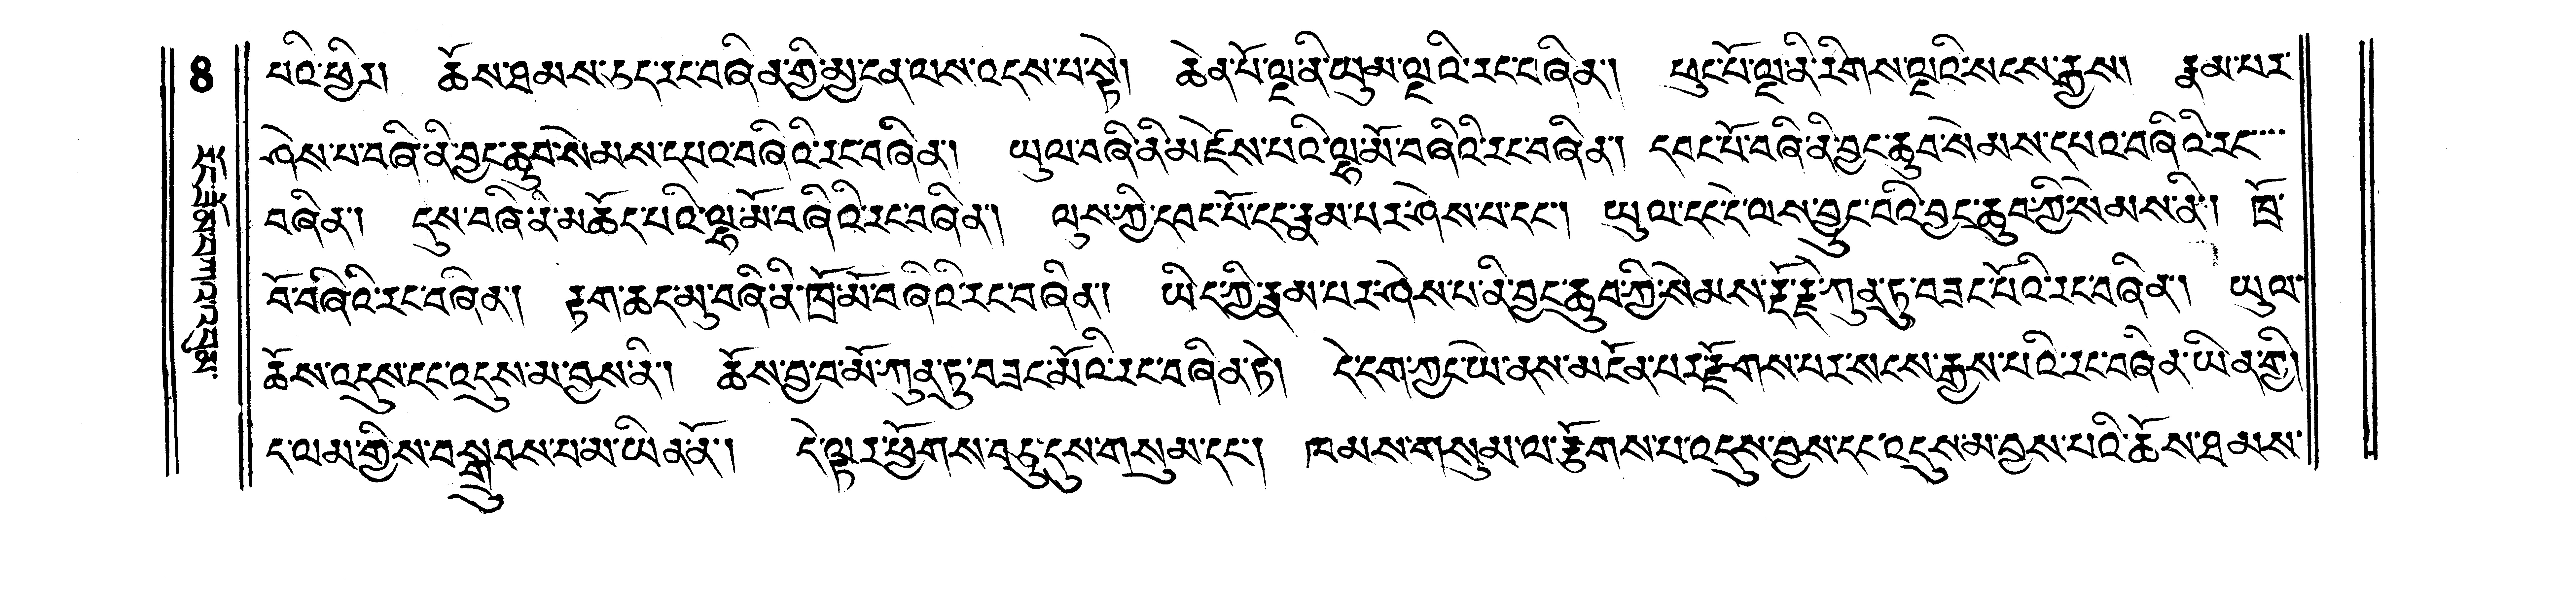 པའི་ཕྱིར། ཆོས་ཐམས་ཅད་རང་བཞིན་གྱི་མྱ་ངན་ལས་འདས་པ་སྟེ། ཆེན་པོ་ལྔ་ནི་ཡུམ་ལྔའི་རང་བཞིན། ཕུང་པོ་ལྔ་ནི་རིགས་ལྔའི་སངས་རྒྱས། རྣམ་པར་
ཤེས་པ་བཞི་ནི་བྱང་ཆུབ་སེམས་དཔའ་བཞིའི་རང་བཞིན། ཡུལ་བཞི་ནི་མཛེས་པའི་ལྷ་མོ་བཞིའི་རང་བཞིན། དབང་པོ་བཞི་ནི་བྱང་ཆུབ་སེམས་དཔའ་བཞིའི་རང་
བཞིན། དུས་བཞི་ནི་མཆོད་པའི་ལྷ་མོ་བཞིའི་རང་བཞིན། ལུས་ཀྱི་དབང་པོ་དང་རྣམ་པར་ཤེས་པ་དང་། ཡུལ་དང་དེ་ལས་བྱུང་བའི་བྱང་ཆུབ་ཀྱི་སེམས་ནི། ཁྲོ་
བོ་བཞིའི་རང་བཞིན། རྟག་ཆད་མུ་བཞི་ནི་ཁྲོ་མོ་བཞིའི་རང་བཞིན། ཡིད་ཀྱི་རྣམ་པར་ཤེས་པ་ནི་བྱང་ཆུབ་ཀྱི་སེམས་རྡོ་རྗེ་ཀུན་ཏུ་བཟང་པོའི་རང་བཞིན། ཡུལ་
ཆོས་འདུས་དང་འདུས་མ་བྱས་ནི། ཆོས་བྱ་བ་མོ་ཀུན་ཏུ་བཟང་མོའི་རང་བཞིན་ཏེ། དེ་དག་ཀྱང་ཡེ་ནས་མངོན་པར་རྫོགས་པར་སངས་རྒྱས་པའི་རང་བཞིན་ཡིན་གྱི།
ད་ལམ་གྱིས་བསྒྲུབས་པ་མ་ཡིན་ནོ། དེ་ལྟར་ཕྱོགས་བཅུ་དུས་གསུམ་དང་། ཁམས་གསུམ་ལ་རྩོགས་པ་འདུས་བྱས་དང་འདུས་མ་བྱས་པའི་ཆོས་ཐམས་